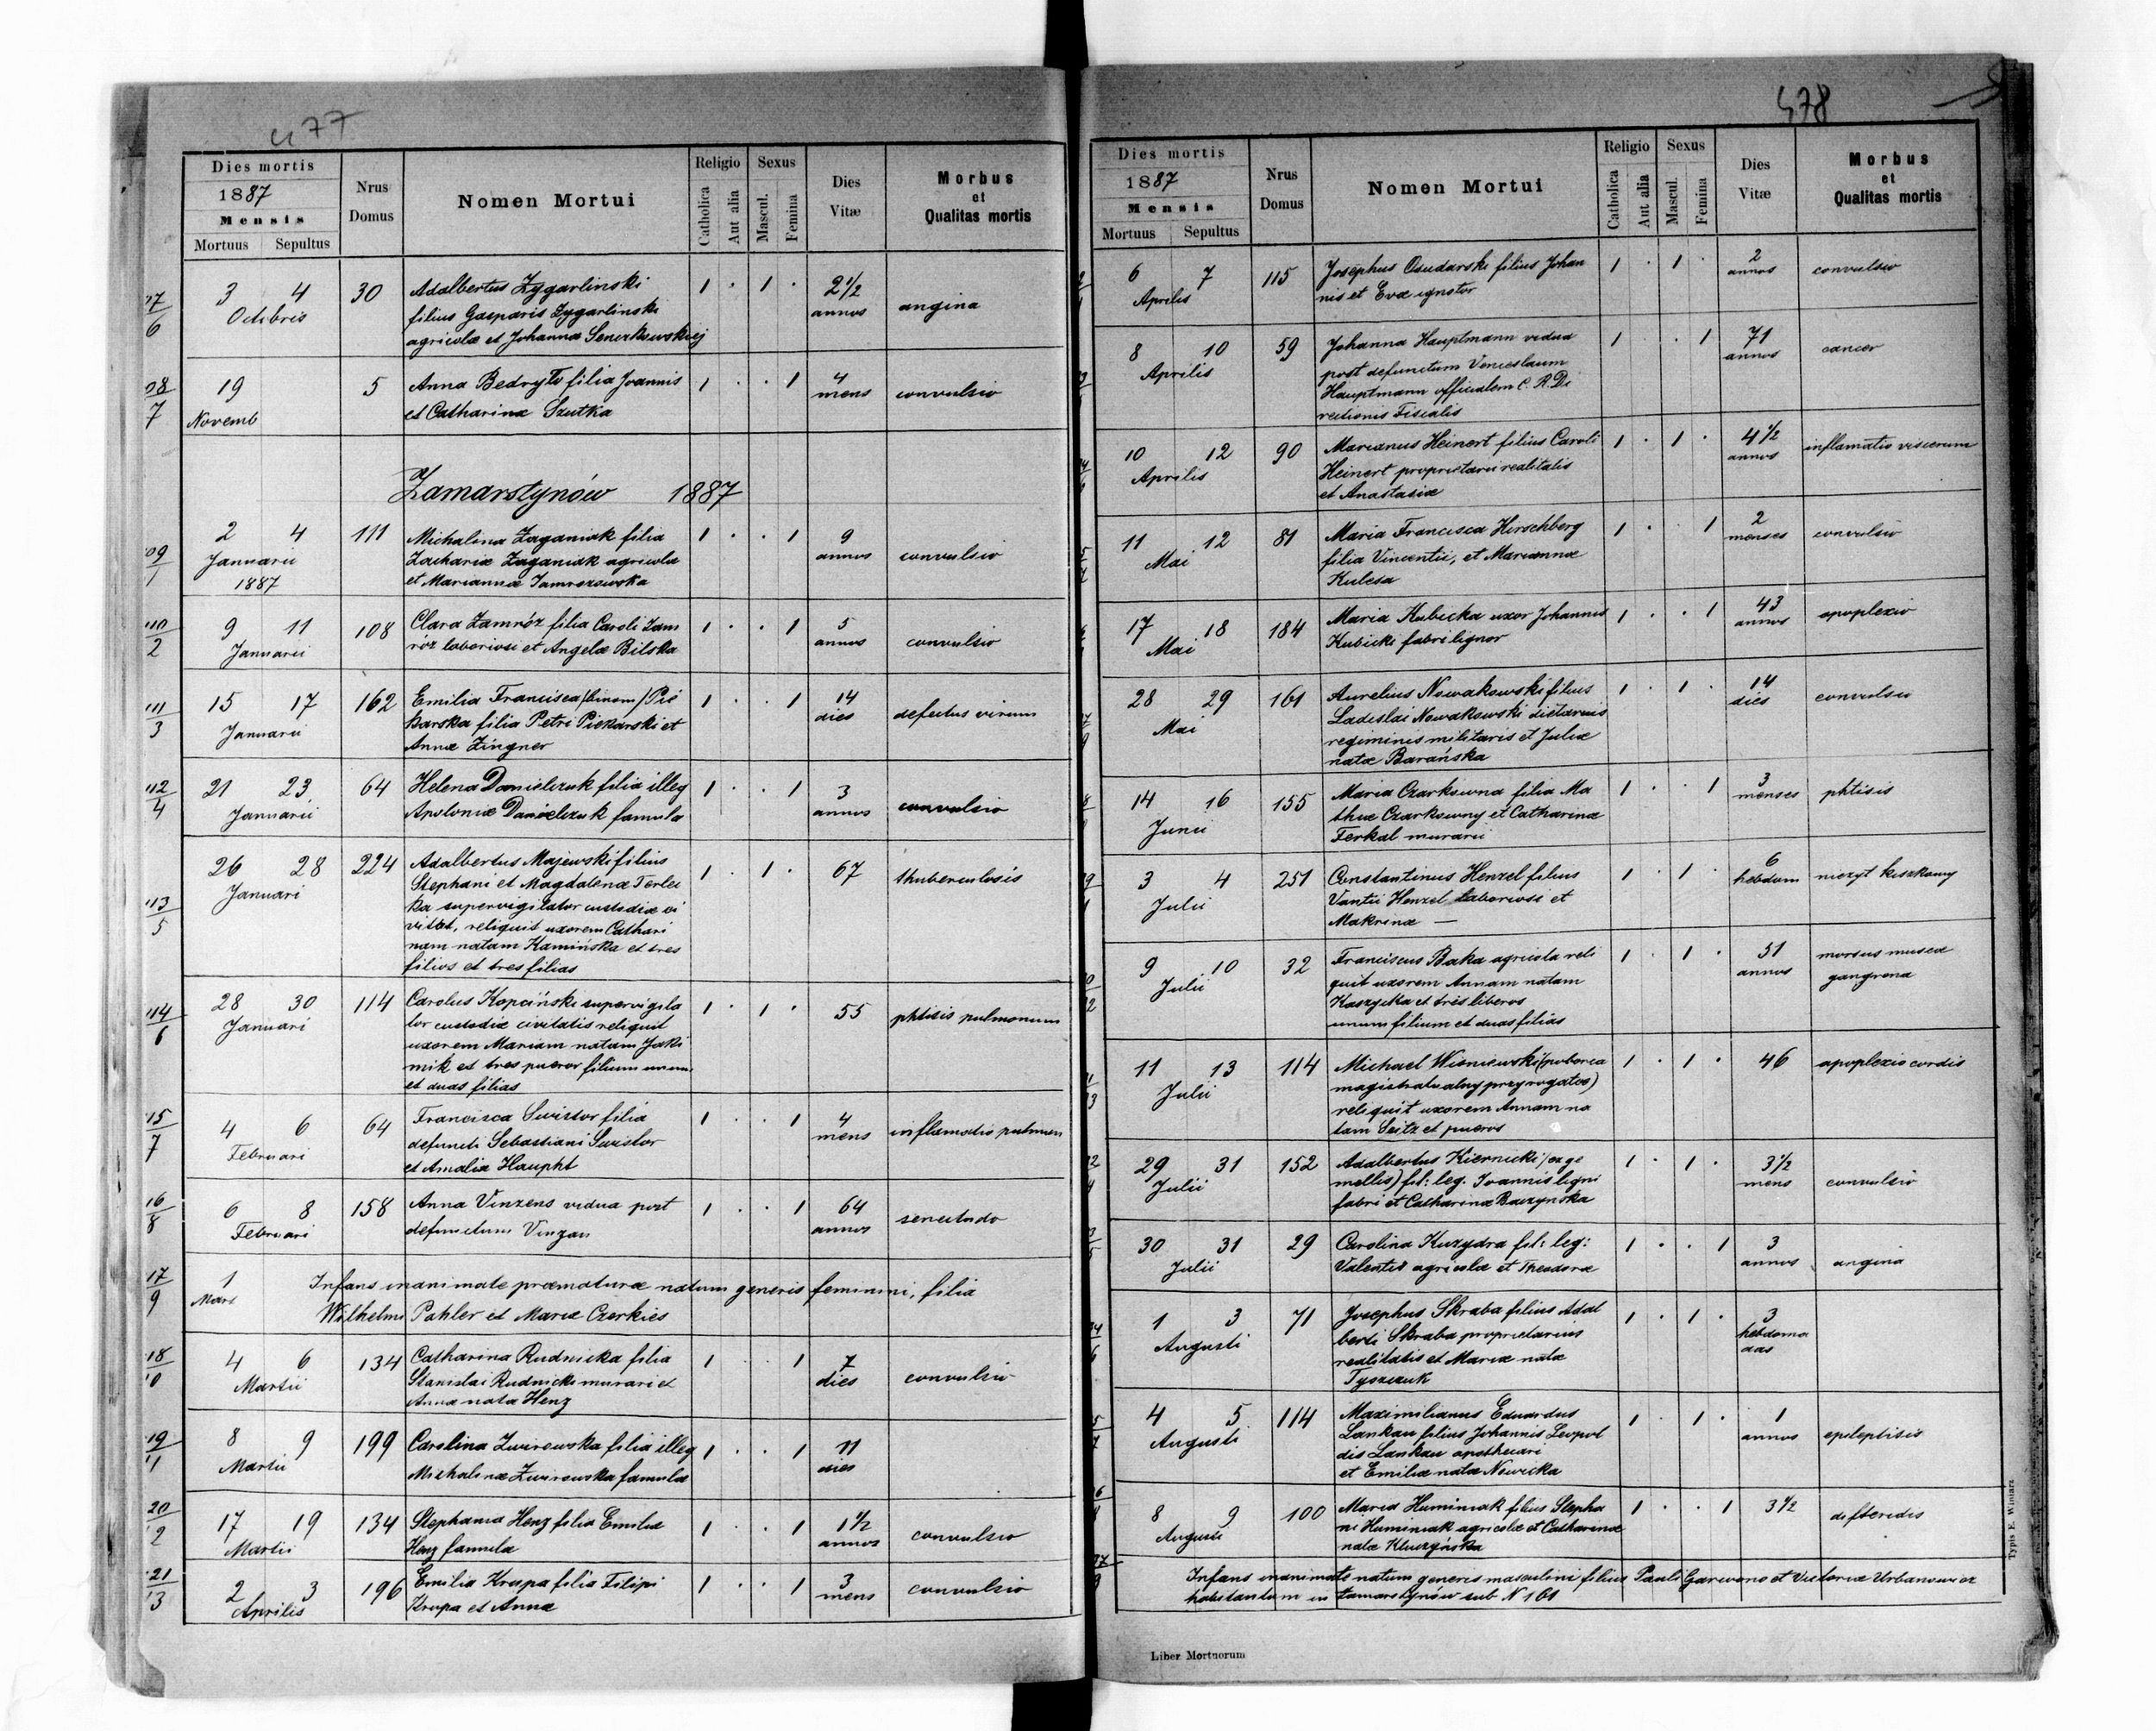 477
Dies mortis
1887
Mensis
Mortuus Sepultus
Nrus Domus
Nomen Mortui
Religio
Catholica
Aut alia
Sexus
Mascul.
Femina
Dies Vitæ
Morbus et Qualitas mortis
3 4 30 Adalbertus Zygarlinski 1 . 1 . 2 1/2
Octobris filius Gasparis Zygarlinski annos angina
agricolæ et Johannæ
19 5 Anna Bedryło filia Joannis 1 . . 1 4 mens convulsio
Novemb et Catharinæ Szutka
Zamarstynów 1887
2 4 111 Michalina Zaganiak filia 1 . . 1 9
Januarii Zachariæ Zaganiak agricolæ annos convulsio
1887 et Mariannæ Jamrozowska
9 11 108 Clara Zamróz filia Caroli Zam 1 . . 1 5
Januarii róz laboriosi et Angelæ Bilska annos convulsio
15 17 162 Emilia Francisca (binom) Pie 1 . . 1 14
Januarii karska filia Petri Piekarski et dies defectus virium
Annæ Zingner
21 23 64 Helena Danielczuk filia illeg 1 . . 1 3
Januarii Apoloniæ Danielczuk famula annos convulsio
26 28 224 Adalbertus Majewski filius 1 . 1 . 67 thuberculosis
Januari Stephani et Magdalenæ Terlec
ka supervigilator custodiæ ci
vitat, reliquit uxorem Cathari
nam natam Kamińska et tres
filios et tres filias
28 30 114 Carolus Kopciński supervigila 1 . 1 . 55 phtisis pulmonum
Januari tor custodiæ civitatis reliquit
uxorem Mariam natam Jaki
mik et tres pueros filium unum
et duas filias
4 6 64 Francisca Swistor filia 1 . . 1 4
Februari defuncti Sebastiani Swistor mens inflamatio pulmon
et Amaliæ Haupht
6 8 158 Anna Vinzens vidua post 1 . . 1 64
Februari defunctum Vinzan annos senectudo
1 Infans inanimate præmaturæ natum generis feminini, filia
Mars Wilhelmi Pahler et Mariæ Czerkies
4 6 134 Catharina Rudnicka filia 1 . . 1 7
Martii Stanislai Rudnicki murari et dies convulsio
Annæ nata Henz
8 9 199 Carolina Zwirowska filia illeg 1 . . 1 11
Martii Michalinæ Zwirowska famulæ dies
17 19 134 Stephania Henz filia Emiliæ 1 . . 1 1 1/2
Martii Henz famulæ annos convulsio
2 3 196 Emilia Krupa filia Filipi 1 . . 1 3
Aprilis Krupa et Annæ mens convulsio
478
Dies mortis
1887
Mensis
Mortuus Sepultus
Nrus Domus
Nomen Mortui
Religio
Catholica
Aut alia
Sexus
Mascul.
Femina
Dies Vitæ
Morbus et Qualitas mortis
6 7 115 Josephus Osudarski filius Johan 1 . 1 . 2 convulsio
Aprilis nis et Evæ annos
8 10 59 Johanna Hauptmann vidua 1 . . 1 71
Aprilis post defunctum Venceslaum annos cancer
Hauptmann officialem C. R. Di
rectionis Fiscalis
10 12 90 Marianus Heinert filius Caroli 1 . 1 . 4 1/2 inflamatio viscerum
Aprilis Heinert proprietarii realitatis annos
et Anastasiæ
11 12 81 Maria Francisca Hirschberg 1 . 1 2 convulsio
Mai filia Vincentii, et Mariannæ menses
Kulesa
17 18 184 Maria Kubicka uxor Johannis 1 . . 1 43 apoplexio
Mai Kubicki fabri lignor annos
28 29 161 Aurelius Nowakowski filius 1 . 1 . 14
Mai Ladislai Nowakowski dietarius dies convulsio
regiminis militaris et Juliæ
natæ Barańska
14 16 155 Maria Czarkowna filia Ma 1 . . 1 3 phtisis
Junii thiæ Czarkowny et Catharinæ menses
Ferkal murarii
3 4 251 Constantinus Henzel filius 1 . 1 . 6 nieżyt kiszkowy
Julii Vantii Henzel laboriosi et hebdom
Makrinæ —
9 10 32 Franciscus Baka agricola reli 1 . 1 . 51 morsus muscæ
Julii quit uxorem Annam natam annos gangrena
Kaszycka et tres liberos
unum filium et duas filias
11 13 114 Michael Wisniewski (poborca 1 . 1 . 46 apoplexio cordis
Julii magistratualny przy rogatce)
reliquit uxorem Annam na
tam Seitz et pueros
29 31 152 Adalbertus Kiernicki (ex ge 1 . 1 . 3 1/2
Julii mellis) fil: leg. Joannis ligni mens convulsio
fabri et Catharinæ Baczyńska
30 31 29 Carolina Kuzydra fil: leg: 1 . . 1 3
Julii Valentii agricolæ et Theodoræ annos angina
1 3 71 Josephus Skraba filius Adal 1 . 1 . 3
Augusti berti Skraba proprietarius hebdoma
realitatis et Mariæ natæ das
Tyszczuk
4 5 114 Maximilianus Eduardus 1 . 1 . 1
Augusti Lankau filius Johannis Leopol annos epileptisis
dis Lankau apothecari
et Emiliæ natæ Nowicka
8 9 100 Maria Huminiak filius Stepha 1 . . 1 3 1/2 difteridis
Augusti ni Huminiak agricolæ et Catharinæ
natæ Kluczyńska
Infans inanimate natum generis masculini filius Pauli et Victoriæ Urbanowicz
habitantum in Zamarstynów sub N 161
Liber Mortuorum
Typis E. Winiarz